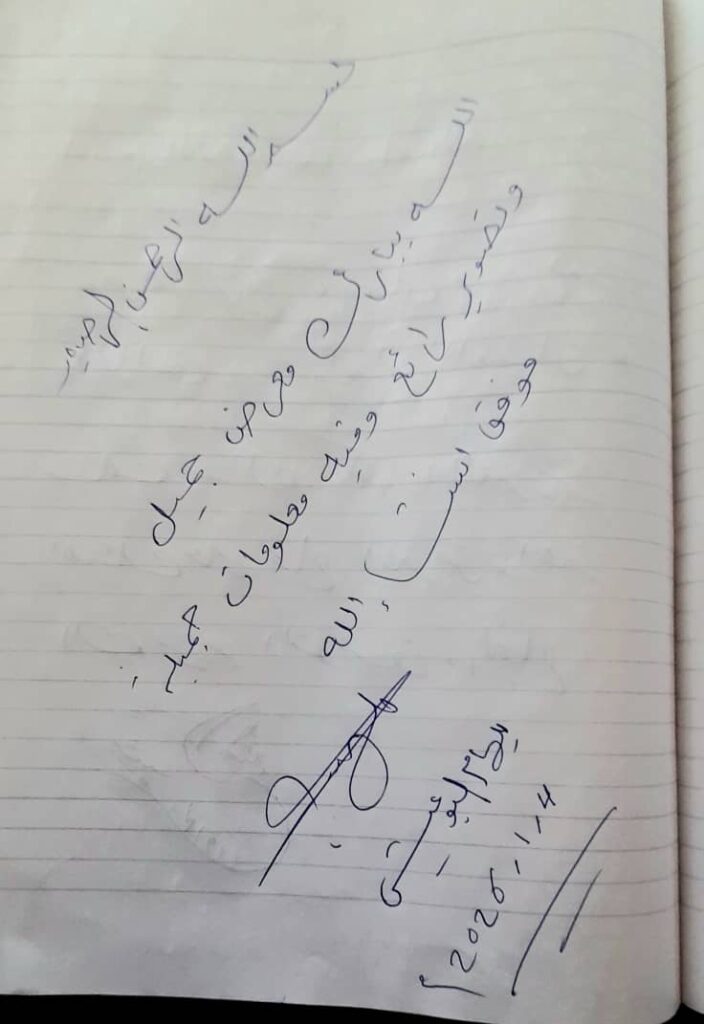 بسم الله الرحمن الرحيم
الله يبارك معرض جميل
وتصوير رائع وفيه معلومات جميلة
موفق انشاء الله
2025-1-4م